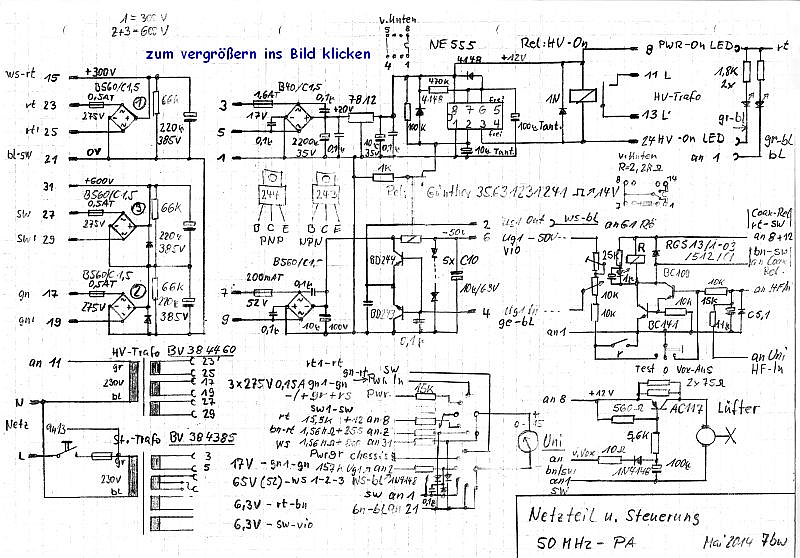 1 = 300V
2+3 = 600V
zum vergrößern ins Bild klicken
v. Unten
5 8
4 1
NE 555
Rel: HV-On
+12V
8 PWR-On LED rt
11 L
HV-Trafo
13 L'
24 HV-On LED gr-bl
an 1 bl
1,8K
2x
gr-bl
ws-rt 15 +300V
B560/C1,5
rt 23 0,5AT
275V
rt1 25
bl-sw 21 0V
66K
220µ
385V
1
3 1,6AT
B40/C1,5
17V
5 0,1µ
1
0,1µ
+20V
7812
2200µ
35V
10µ
35V
0,1µ
100K
470K
4148
4148
8 7 6 5
1 2 3 4
frei
frei
1N
100µ Tant.
10µ Tant.
31 +600V
B560/C1,5
sw 27 0,5AT
275V
sw1 29
3
66K
220µ
385V
gn 17 B560/C1,5
0,5AT
275V
gn1 19
2
66K
220µ
385V
244
B C E
PNP
243
B C E
NPN
1K
Rel: Günther 3563 1231 241 14V
v. Unten
R=2,2KΩ
8 14
B560/C1,5
7 200mAT
52V
9 0,1µ
0,1µ
10µ
100V
BD244
BD243
-50V
5x
C10
10µ/63V
0,1µ
2 Ug1 Out ws-bl
6 Ug1 -50V
vio
4 Ug1 In
ge-bl
an G1 Rt
25K
10K
10K
R
RGS13/1-03
BC109
BC141
10K
10K
15K
C5,1
an 1
r
Test 0 Vox-Aus
Coax-Rel
rt-sw
an 8+12
bn-sw
an Coax
Rel.
an HF In
an Uni
HF-In
an 11
HV-Trafo BV 384460
gr
230V
bl
23
25
17
19
27
29
3x275V 0,15A
N
Netz
an 13
L
St.-Trafo BV 384385
gr
230V
bl
3
5
17V - gn1-gn
65V (52) - ws 1-2-3
6,3V - rt-bn
6,3V - sw-vio
rt1-rt
gn1-gn
sw1-sw
gn-rt
sw
Pwr In
Pwr.
15K
rt 15,5K+12 an 8
bn-rt an 2
ws an 31
Pwr gr chassis
157K Ug1 an 2
ws-bl 1N4148
sw an 1
bn-bl an 21
0-
+
15
Uni
an 8 +12V
2 x 75Ω
560Ω
AC117
Lüfter
5,6K
an r, Vox 10Ω
bn/sw
1N4148
100µ
an 1
sw
Netzteil u. Steuerung
50 MHz - PA Mai 2014 7bw